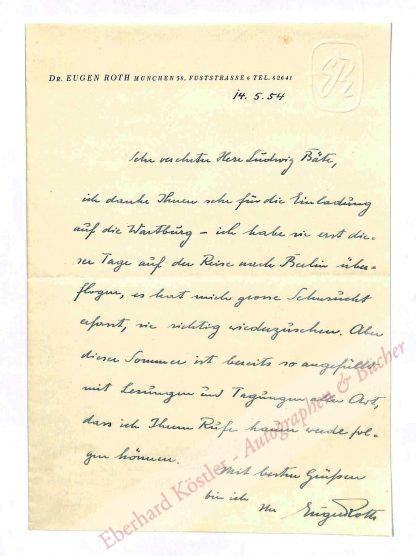 ER
DR. EUGEN ROTH MÜNCHEN 38, FUSTSTRASSE 6 TEL. 62641
14. 5. 54
Sehr verehrter Herr Ludwig Bäte,
ich danke Ihnen sehr für die Einladung
auf die Wartburg – ich habe sie erst die-
ser Tage auf der Reise nach Berlin über-
flogen, es hat mich grosse Sehnsucht
erfasst, sie richtig wiederzusehen. Aber
dieser Sommer ist bereits so angefüllt
mit Lesungen und Tagungen aller Art,
dass ich Ihrem Rufe kaum werde fol-
gen können.
Mit besten Grüßen
bin ich
Ihr Eugen Roth
Eberhard Köstler - Autographen & Bücher